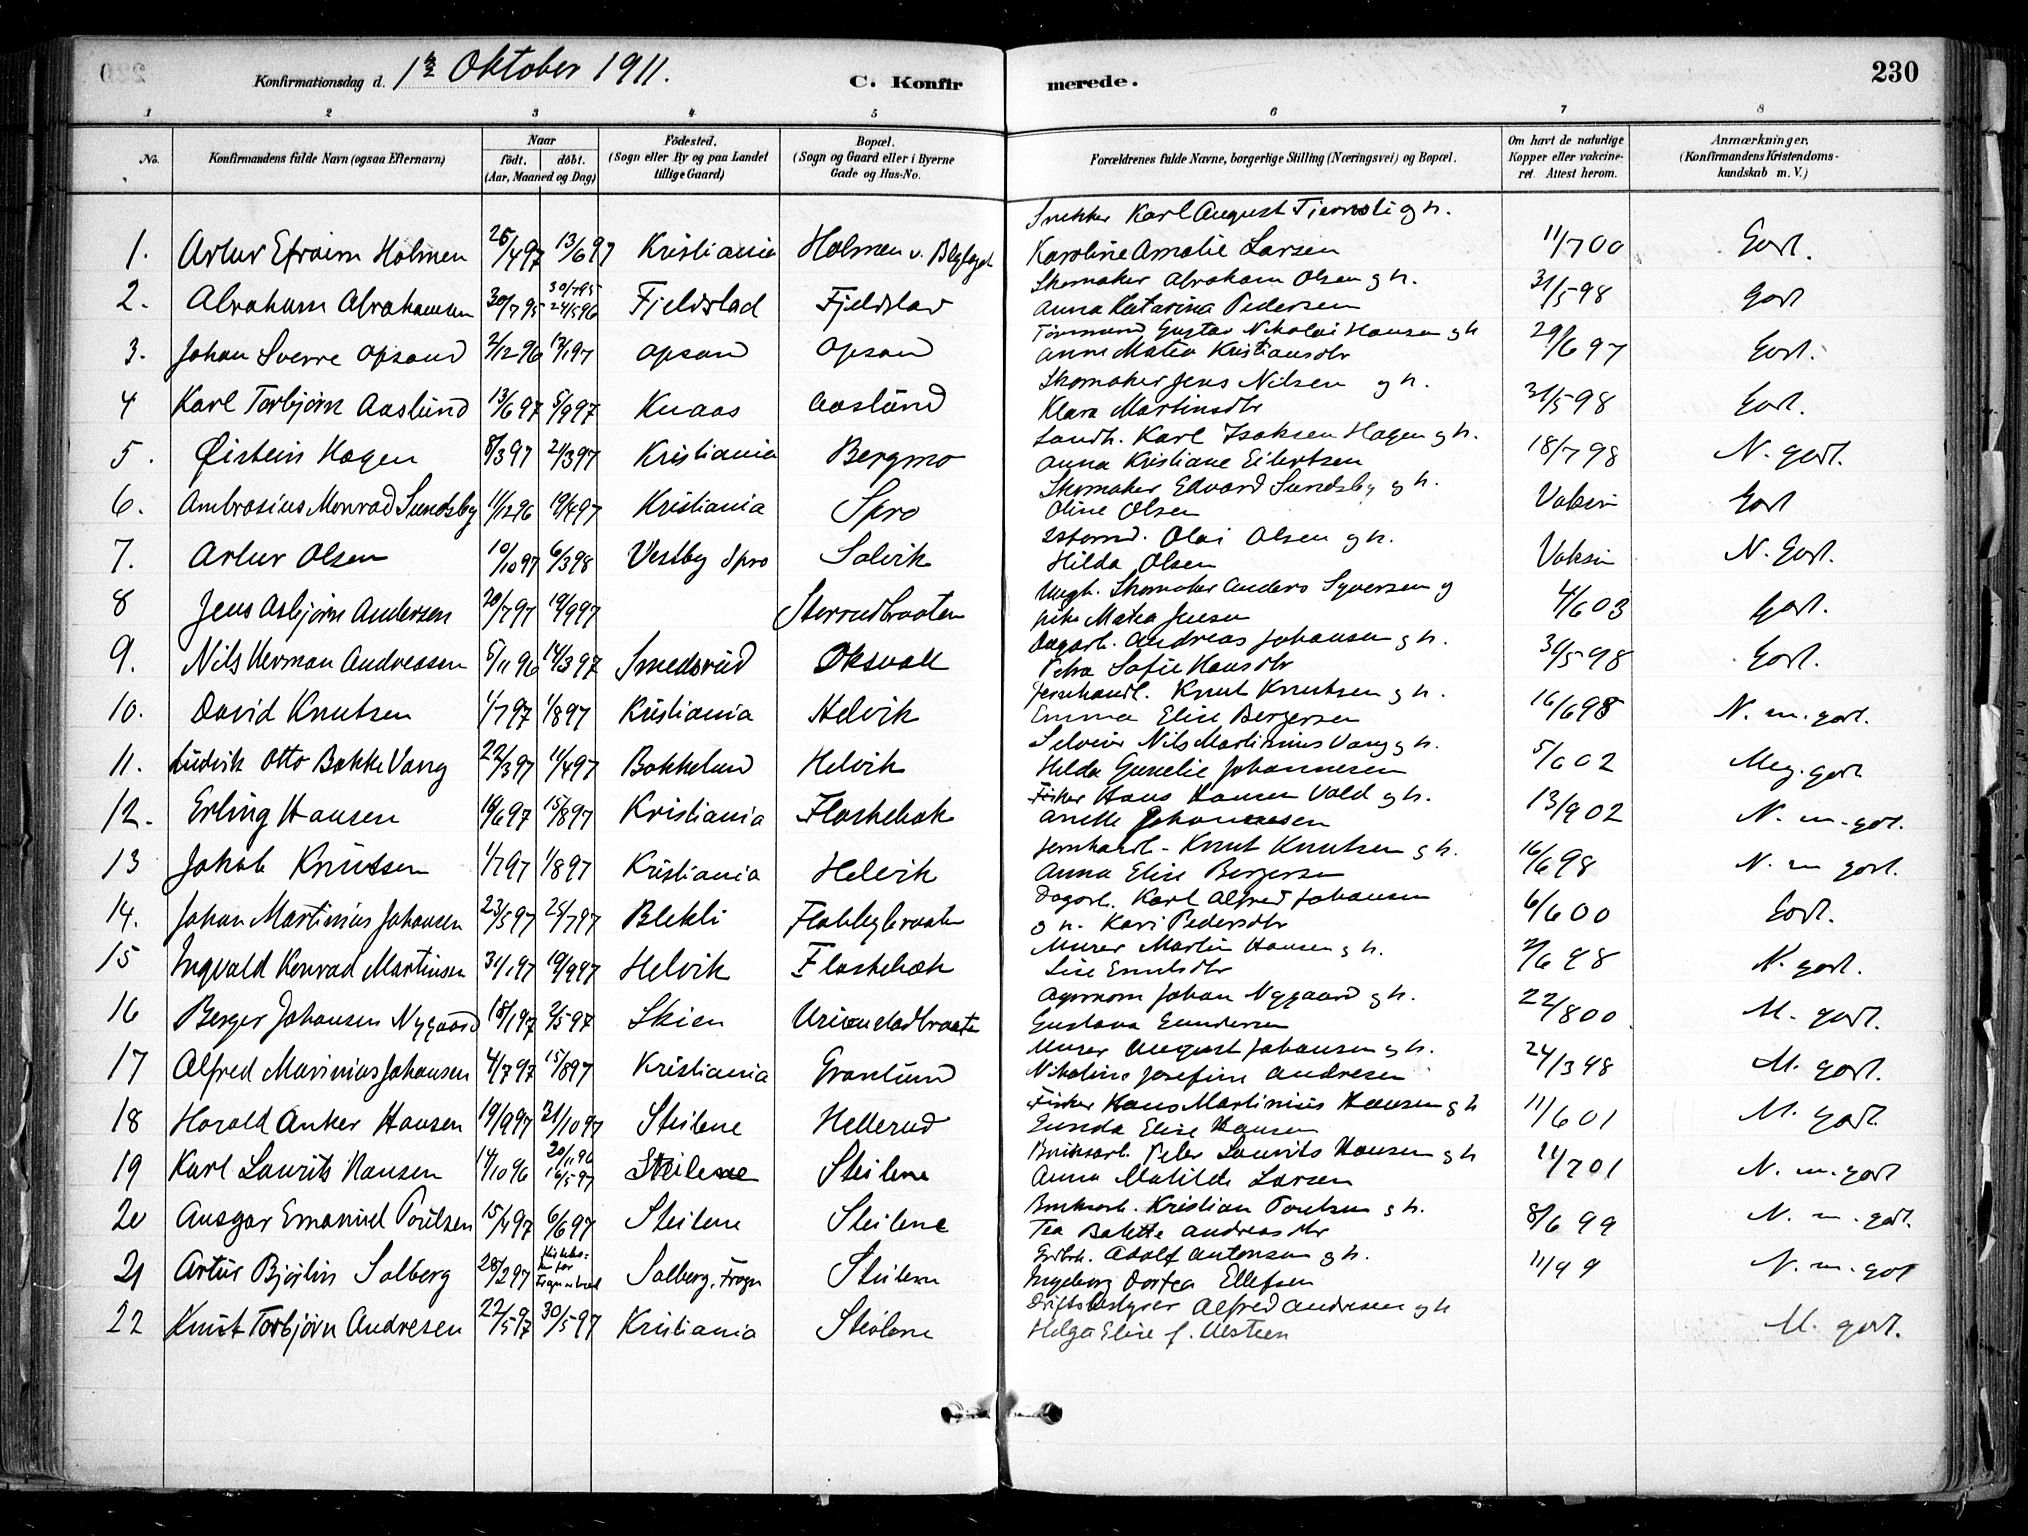 Konfirmationsdag d. 1ste Oktober 1911. C. Konfirmerede. 230
1 2 3 4 5 6 7 8
No. Konfirmandens fulde Navn (ogsaa Efternavn) Naar født. døbt. (Aar, Maaned og Dag) Fødested. (Sogn eller By og paa Landet tillige Gaard) Bopæl. (Sogn og Gaard eller i Byerne Gade og Hus-No. Forældrenes fulde Navne, borgerlige Stilling (Næringsvei) og Bopæl. Om havt de naturlige Kopper eller vakcineret. Attest herom. Anmærkninger. (Konfirmandens Kristendomskundskab m. V.)
Snekker Karl August Tiernsli og h.
1. Artur Efraim Holmen 26/4 97 13/6 97 Kristiania Holmen v. Karoline Amalie Larsen 11/7 00 Godt.
Skomaker Abraham Olsen og h.
2. Abraham Abrahamsen 30/7 95 30/7 95 24/5 96 Fjeldstad Fjeldstad Anna Katarina Pedersen 31/5 98 Godt
Tømmermd Gustav Nikolai Hansen og h
3. Johan Sverre Opsand 2/12 96 17/1 97 Opsand Opsand Anne Matea Kristiansdtr 29/6 97 Godt.
Skomaker Jens Nilsen og h.
4 Karl Torbjørn Aaslund 13/6 97 5/9 97 Knaas Aaslund Klara Martinsdtr 31/5 98 Godt.
Landh. Karl Isaksen Hagen og h.
5. Øistein Hagen 8/3 97 21/3 97 Kristiania Bergmo Anna Kristiane Eilertsen 18/7 98 N. godt.
Skomaker Edvard Sundsby og h.
6. Ambrosius Monrad Sundsby 11/12 96 19/4 97 Kristiania Spro Oline Olsen Vaksin Godt
Olai Olsen og h.
7. Artur Olsen 10/10 97 6/3 98 Vestby Spro Solvik Hilda Olsen Vaksin N. Godt.
Ungk. Skomaker Anders Syversen og
8 Jens Asbjørn Andersen 20/7 97 19/9 97 Storrudbraaten pike Matea Jensen 4/6 03 Godt.
Dagarb. Andreas Johansen og h.
9. Nils Herman Andreasen 5/11 96 14/3 97 Smedsrud Oksvall Petra Sofie Hansdtr 31/5 98 Godt.
Jernhandl. Knut Knutsen og h.
10. David Knutsen 1/7 97 1/8 97 Kristiania Helvik Emma Elise Bergersen 16/6 98 N. m. godt.
Selveier Nils Martinius Vang og h.
11. Ludvik Otto Bakke Vang 22/3 97 11/4 97 Bakkelund Helvik Hilda Gunelie Johannesen 5/6 02 Meg. godt
Fisker Hans Hansen Vold og h.
12. Erling Hansen 16/6 97 15/8 97 Kristiania Flaskebæk Anette Johannesen 13/9 02 N. m. godt.
Jernhandl. Knut Knutsen og h.
13 Jakob Knutsen 1/7 97 1/8 97 Kristiania Helvik Anna Elise Bergersen 16/6 98 N. m godt.
Dagarb. Karl Alfred Johansen
14. Johan Martinius Johansen 23/5 97 25/7 97 Blekli Flakbybraaten og h. Kari Pedersdtr 6/6 00 Godt.
Murer Martin Hansen og h.
15 Ingvald Konrad Martinsen 31/1 97 19/9 97 Helvik Flaskebæk Lise Emilsdtr 2/6 98 N. godt.
Agronom Johan Nygaard og h.
16 Berger Johansen Nygaard 15/1 97 2/5 97 Skien Ursvendstadbraaten Gustava Gundersen 22/8 00 M. godt.
Murer August Johansen og h.
17 Alfred Marinius Johansen 4/7 97 15/8 97 Kristiania Granlund Nikoline Josefine Andresen 24/3 98 M. godt.
Fisker Hans Martinius Hansen og h
18 Harald Anker Hansen 19/9 97 31/10 97 Steilene Hellerud Gunda Elise Hansen 11/6 01 M. godt.
Bruksarb. Peter Laurits Hansen og h
19 Karl Laurits Hansen 14/10 96 20/11 96 16/5 97 Steilene Steilene Anna Matilde Larsen 11/7 01 N. m. godt
Bruksarb. Kristian Poulsen og h.
20 Ansgar Emanuel Poulsen 15/4 97 6/6 97 Steilene Steilene Tea Bolette Andreasdtr 8/6 99 N. m. godt.
Adolf Antonsen og h.
21 Artur Bjørlin Solberg 28/2 97 Solberg, Frogn Steilene Ingeborg Dortea Ellefsen 11/4 9 N. m. godt
Driftsbestyrer Alfred Andresen og h
22 Knut Torbjørn Andresen 22/5 97 30/5 97 Kristiania Steilene Helga Elise f. Uesteen M. godt.